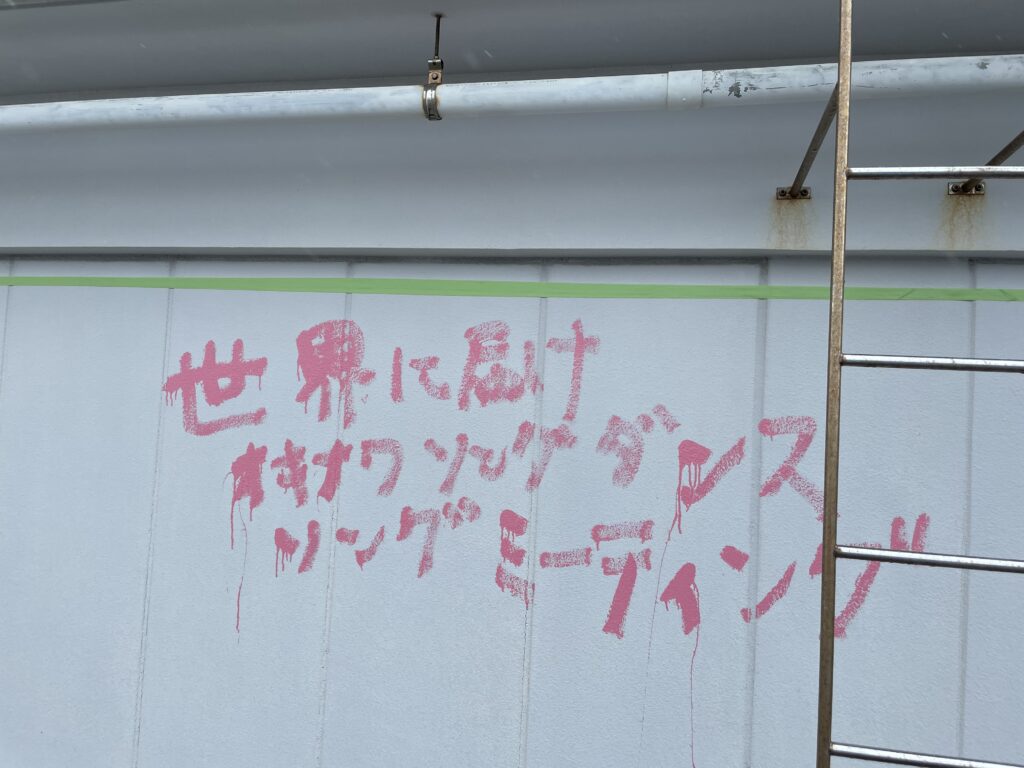 世界に届け
オキナワソングダンス
ソングミーティング